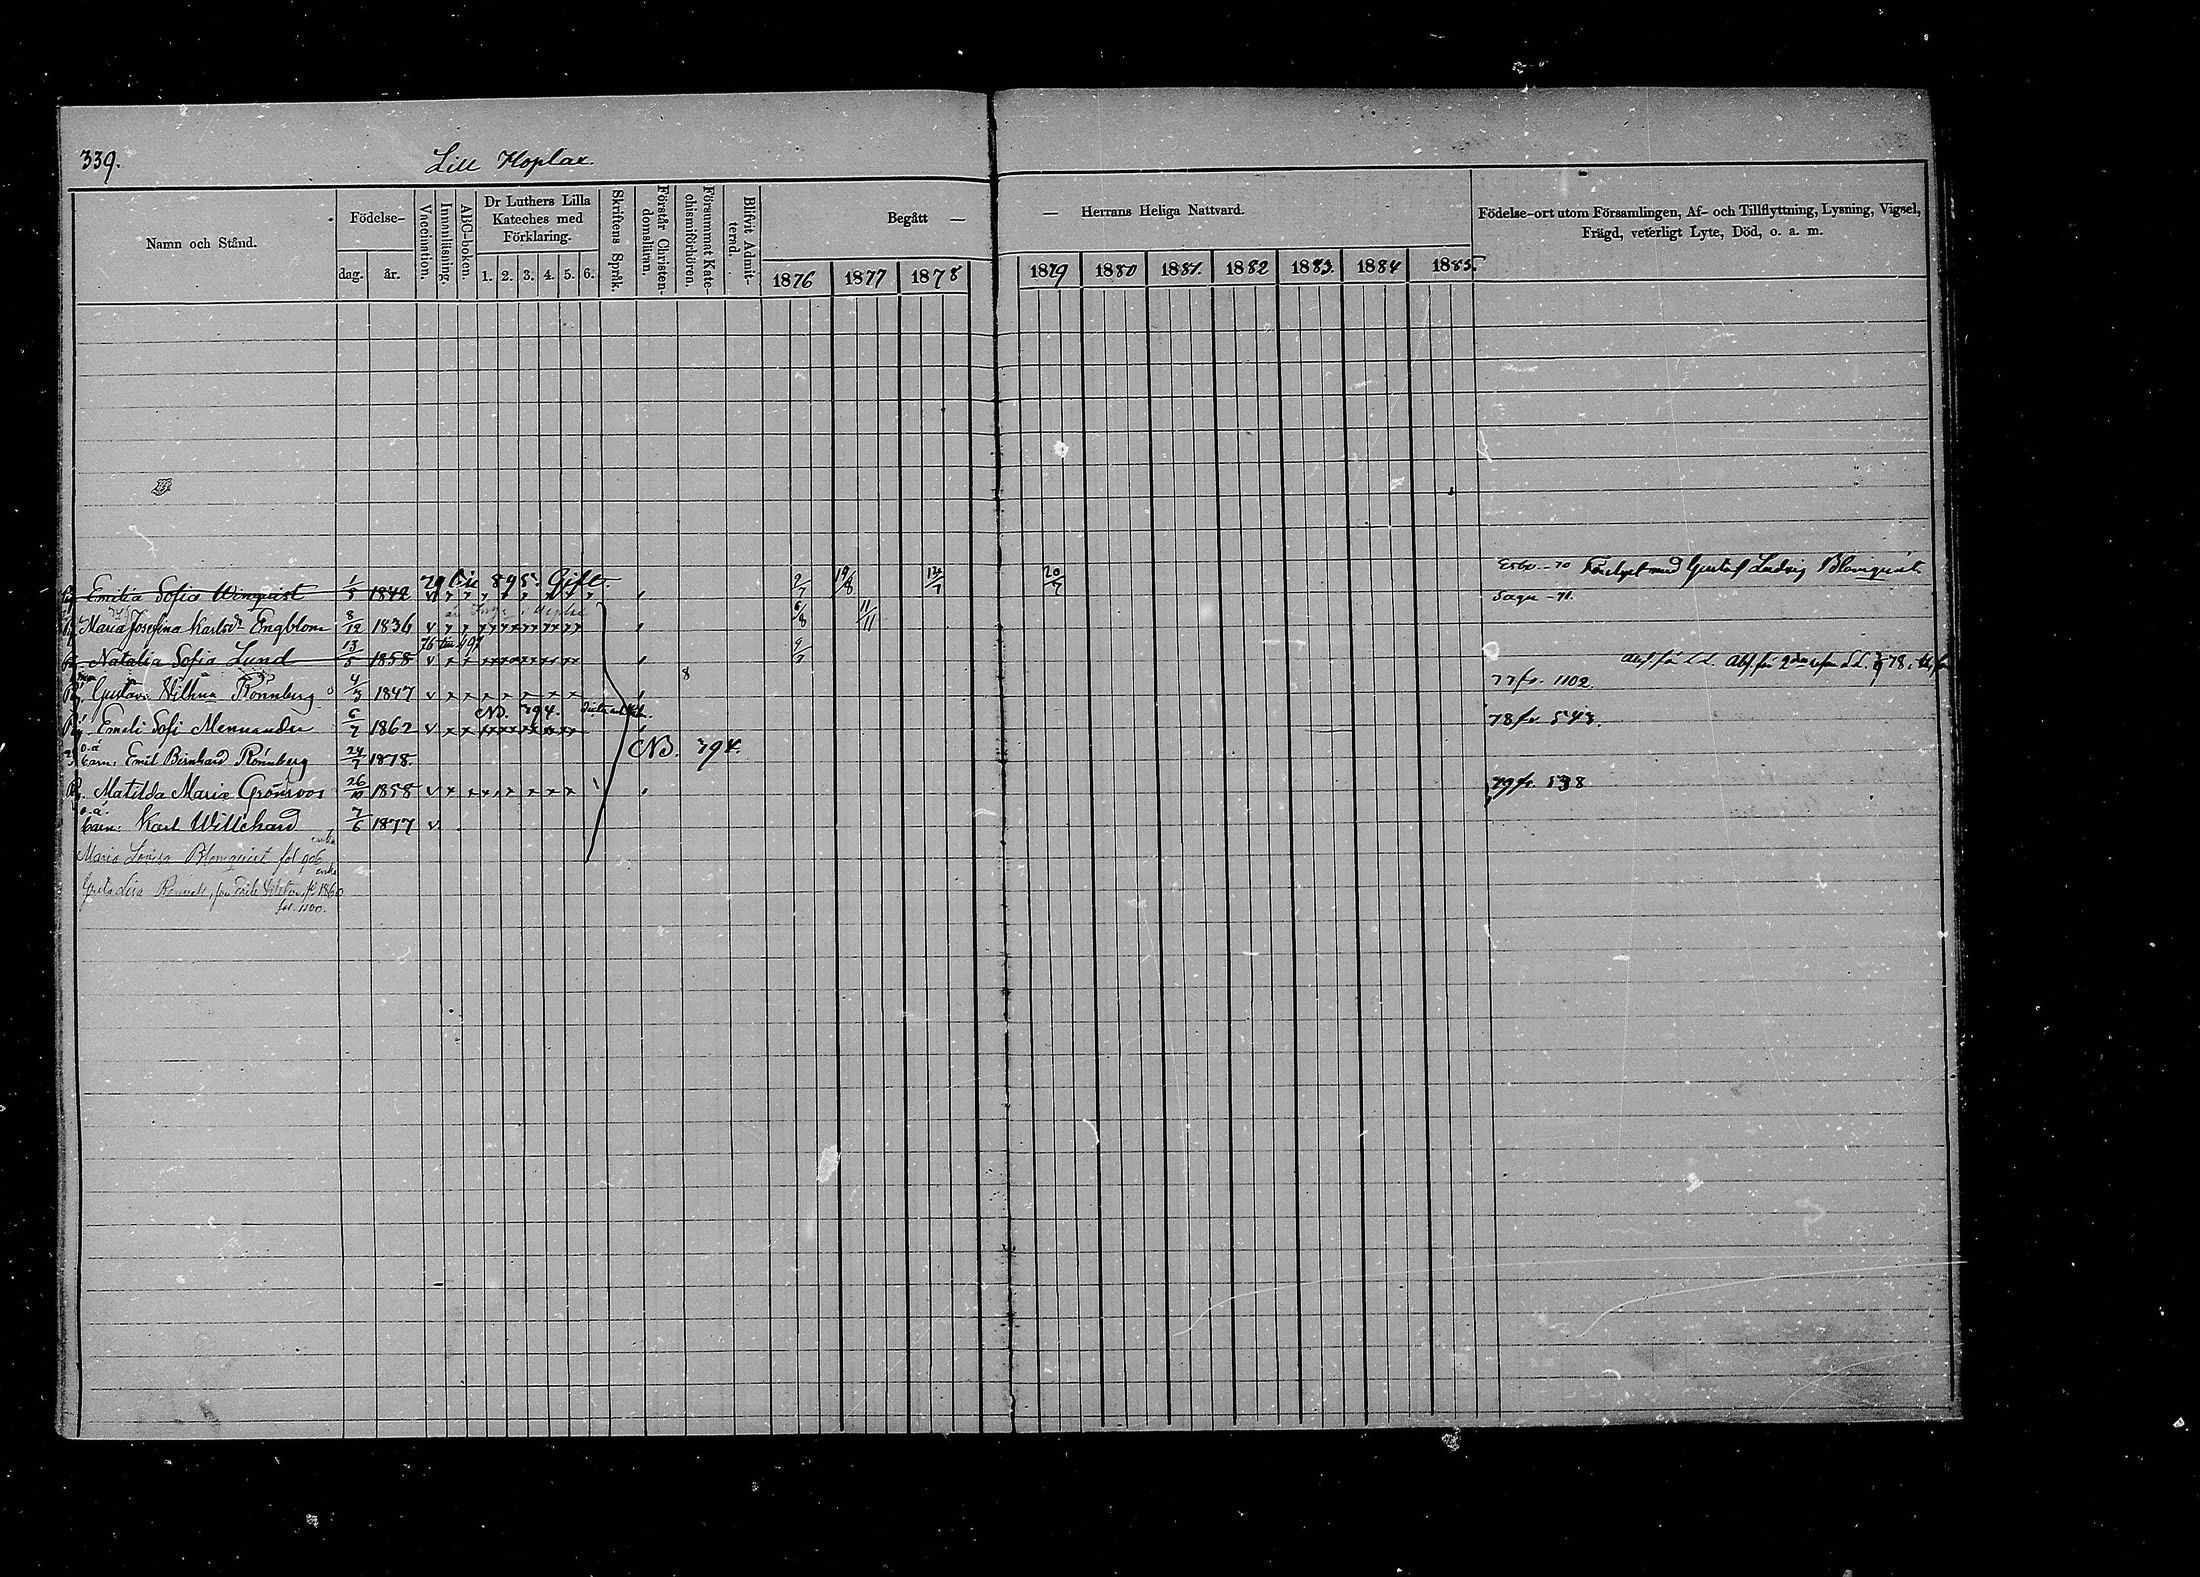 339.
Lill Hoplax.
Namn och Stånd.
Födelse-
dag.
år.
Vaccination.
Innanläsning.
ABC-boken.
Dr Luthers Lilla
Kateches med
Förklaring.
1. 2. 3. 4. 5. 6.
Skriftens Språk.
Förstår Christen-
domsläran.
Försummat Kate-
chismiförhören.
Blifvit Admit-
terad.
Begått —
— Herrans Heliga Nattvard.
1876 1877 1878 1879 1880 1881. 1882 1883. 1884 1885.
Födelse-ort utom Församlingen, Af- och Tillflyttning, Lysning, Vigsel,
Frägd, veterligt Lyte, Död, o. a. m.
79 895. Gift.
Emilia Sofia Winquist 1/5 1842 v 9/7 19/8 14/7 20/7 Esbo -70 Gustaf Ludvig Blomquist
Maria Josefina Karlsdr Engblom 8/12 1836 v 6/8 11/11 Sagu -71.
76 491
Natalia Sofia Lund 13/5 1858 v 9/7
8
Gustava Vilhna Rönnberg 4/3 1847 v 77 fr. 1102.
No. 394.
Emeli Sofi Mennander 6/7 1862 v 78 fr. 543.
o.ä. barn: Emil Bernhard Rönnberg 24/7 1878. No. 394.
Matilda Maria Grönroos 26/10 1858 v 79 fr. 538
o.ä. barn: Karl Willehard 7/6 1877 v
enka
Maria Lovisa Blomquist fol
enka
Greta Lisa
fol. 1100.